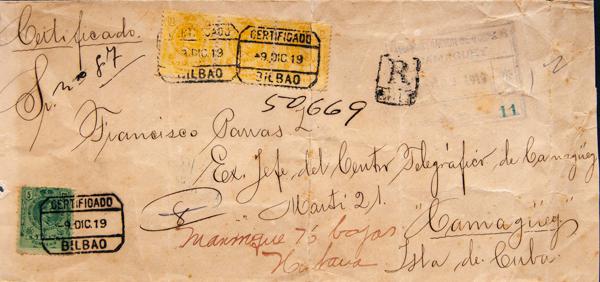 Certificado.
Sr. nº 87
CERTIFICADO
-9.DIC.19
BILBAO
CERTIFICADO
-9.DIC.19
BILBAO
R
1919
11
50,669
Francisco
Ex. Jefe del Centro Telegráfico de Camagüey
Martí 21.
"Camagüey"
Isla de Cuba.
8
76 bajos
Habana
5
CERTIFICADO
-9.DIC.19
BILBAO